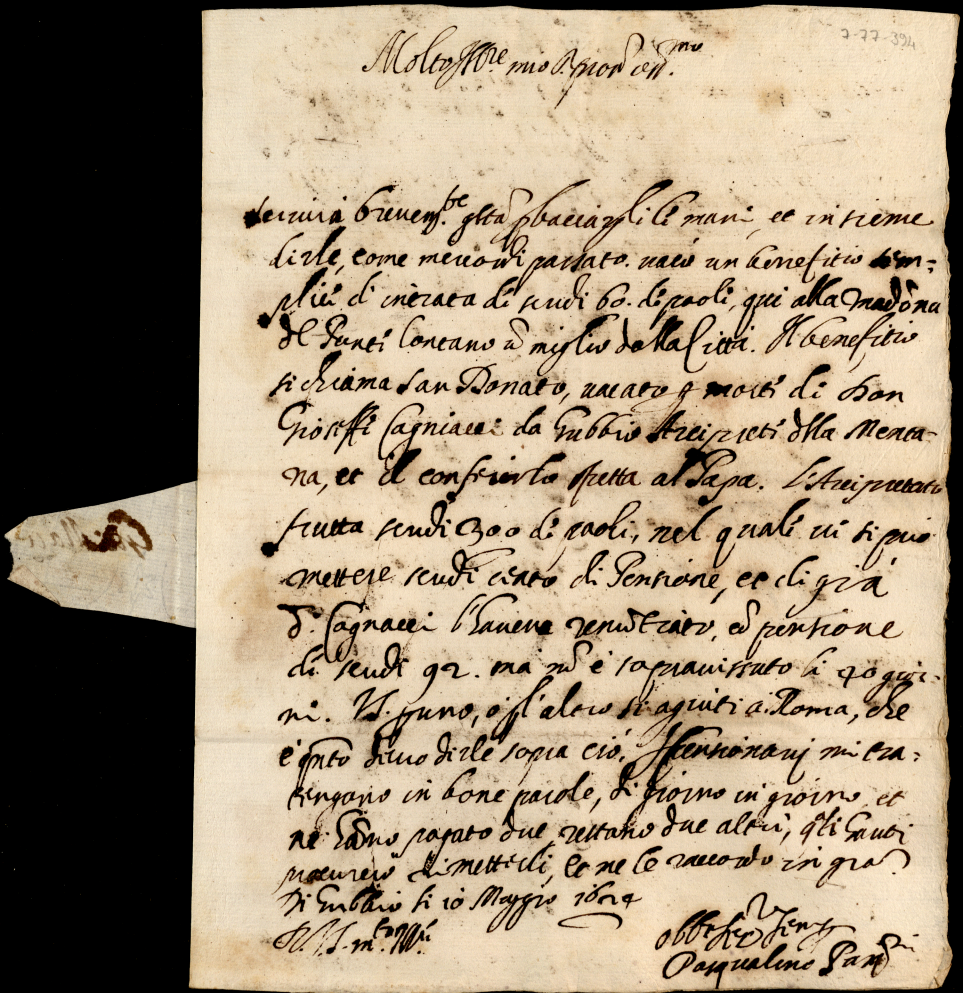 7-77-394
Molto Ill.re mio S.r
Servirà brevem.te q.sta p baciargli le mani, et insieme
dirle, come mercordi passato. vacò un benefitio sem=
plice di intrata di scudi 60. di paoli, qui alla Madona
del Ponte lontano un miglio dalla Città. Il benefitio
si chiama San Donato, vacato p morte di Don
Gioseffe Cagniacci da Gubbio Arciprete dlla Menta-
na, et il conferirlo spetta al Papa. L'Arcipretato
frutta scudi 300 di paoli, nel quale vi si può
mettere scudi cento di Pensione, et di già
d. Cagnacci l'haveva renuntiato, co pensione
di scudi 92. ma no è sopravissuto li 40 gior-
ni. V.S. p uno, o p l'altro si agiuti a Roma, che
è q.nto devo dirle sopra ciò. I pensionarij mi tra=
tengano in bone parole, di giorno in giorno, et
ne hano pagato due restano due altri, q.li hauti
procurerò di metterli, et me le raccordo in gra.
Di Gubbio li 10 Maggio 1624
D. V.S. m.to Ill.re
Pasqualino